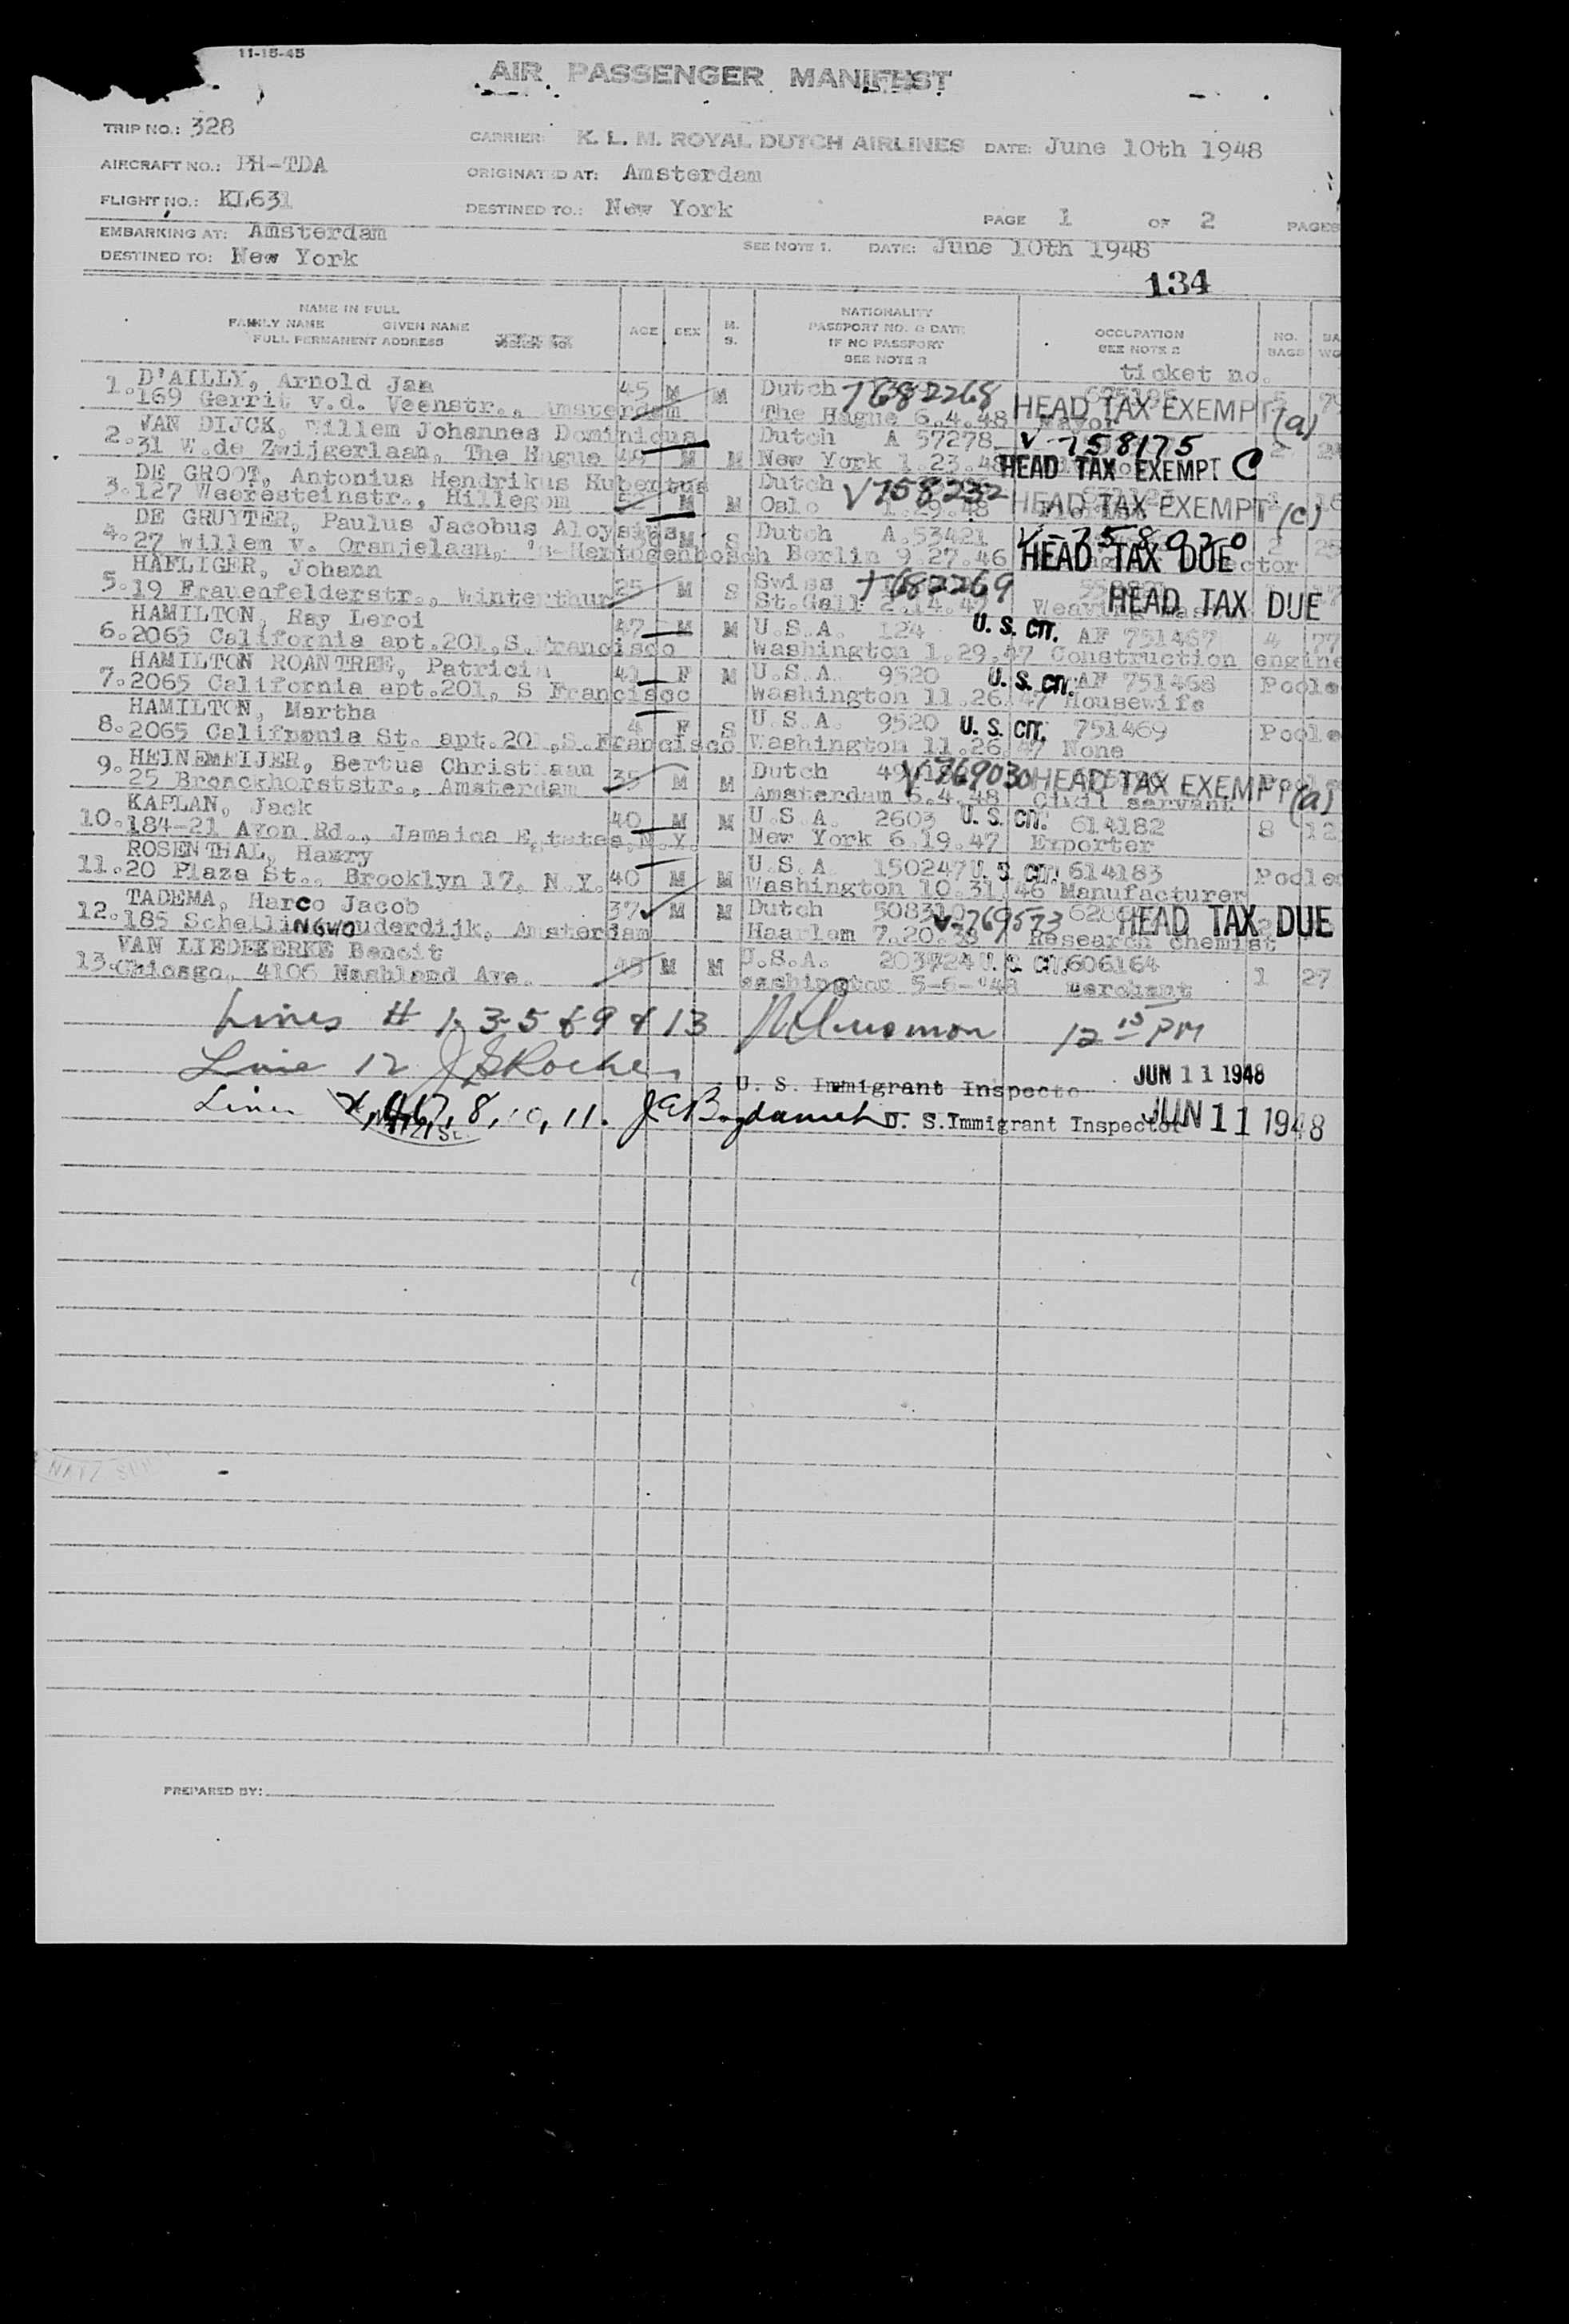 11-15-45
AIR PASSENGER MANIFEST
TRIP NO.: 328
CARRIER: K. L. M. ROYAL DUTCH AIRLINES DATE: June 10th 1948
AIRCRAFT NO.: PH-TDA
ORIGINATED AT: Amsterdam
FLIGHT NO.: KL631
DESTINED TO.: New York
PAGE 1 OF 2 PAGES
EMBARKING AT: Amsterdam
SEE NOTE 1. DATE: June 10th 1948
DESTINED TO: New York
134
NAME IN FULL
FAMILY NAME GIVEN NAME
FULL PERMANENT ADDRESS
AGE SEX M. S.
NATIONALITY
PASSPORT NO. & DATE
IF NO PASSPORT
SEE NOTE 3
OCCUPATION
SEE NOTE 2
NO. BAGS
ticket no.
D'AILLY, Arnold Jan 45 M M Dutch T682268
1. 169 Gerrit v.d. Veenstr., Amsterdam The Hague 6.4.48 Mayor HEAD TAX EXEMPT (a)
VAN DIJCK, Willem Johannes Dominicus Dutch A 57278 V-758175
2. 31 W.de Zwijgerlaan, The Hague M M New York 1.23.48 HEAD TAX EXEMPT C
DE GROOT, Antonius Hendrikus Hubertus Dutch V758232
3. 127 Weeresteinstr., Hillegom M M Oslo HEAD TAX EXEMPT (c)
DE GRUYTER, Paulus Jacobus Aloysius M S Dutch A.53421 V-758020
4. 27 Willem v. Oranjelaan, 's-Hertogenbosch Berlin 9 27.46 HEAD TAX DUE
HAFLIGER, Johann 25 M S Swiss T682269
5. 19 Frauenfelderstr., Winterthur St.Gall 2.14.47 Weaving HEAD TAX DUE
HAMILTON, Ray Leroi 47 M M U.S.A. 124 U. S. CIT. AF 751467 4 77
6. 2065 California apt.201,S.Francisco Washington 1.29.47 Construction engine
HAMILTON ROANTREE, Patricia 41 F M U.S.A. 9520 U. S. CIT. AF 751468 Poole
7. 2065 California apt.201, S Francisco Washington 11.26.47 Housewife
HAMILTON, Martha 4 F S U.S.A. 9520 U. S. CIT. 751469 Poole
8. 2065 California St. apt.201,S.Francisco Washington 11.26.47 None
HEINEMEIJER, Bertus Christiaan 35 M M Dutch V769030 HEAD TAX EXEMPT (a)
9. 25 Bronckhorststr., Amsterdam Amsterdam 6.4.48 Civil servant
KAPLAN, Jack 40 M M U.S.A. 2603 U. S. CIT. 614182 8 12
10. 184-21 Avon Rd., Jamaica Estates N.Y. New York 6.19.47 Exporter
ROSENTHAL, Harry 40 M M U.S.A 150247 U. S. CIT. 614183 Poole
11. 20 Plaza St., Brooklyn 17, N.Y. Washington 10.31.46 Manufacturer
TADEMA, Harco Jacob 37 M M Dutch V-769573 HEAD TAX DUE
12. 185 Schellingwouderdijk, Amsterdam Haarlem Research chemist
VAN LIEDEKERKE Benoit M M U.S.A. 203924 U. S. CIT. 606164 1 27
13. Chicago, 4106 Nashland Ave. Washington 5-6-'48 merchant
Lines # 1, 3-5 & 9 & 13 12 15 PM
Line 12 J S Roche
U. S. Immigrant Inspector JUN 11 1948
Lines 8, 10, 11. U. S. Immigrant Inspector JUN 11 1948
PREPARED BY: